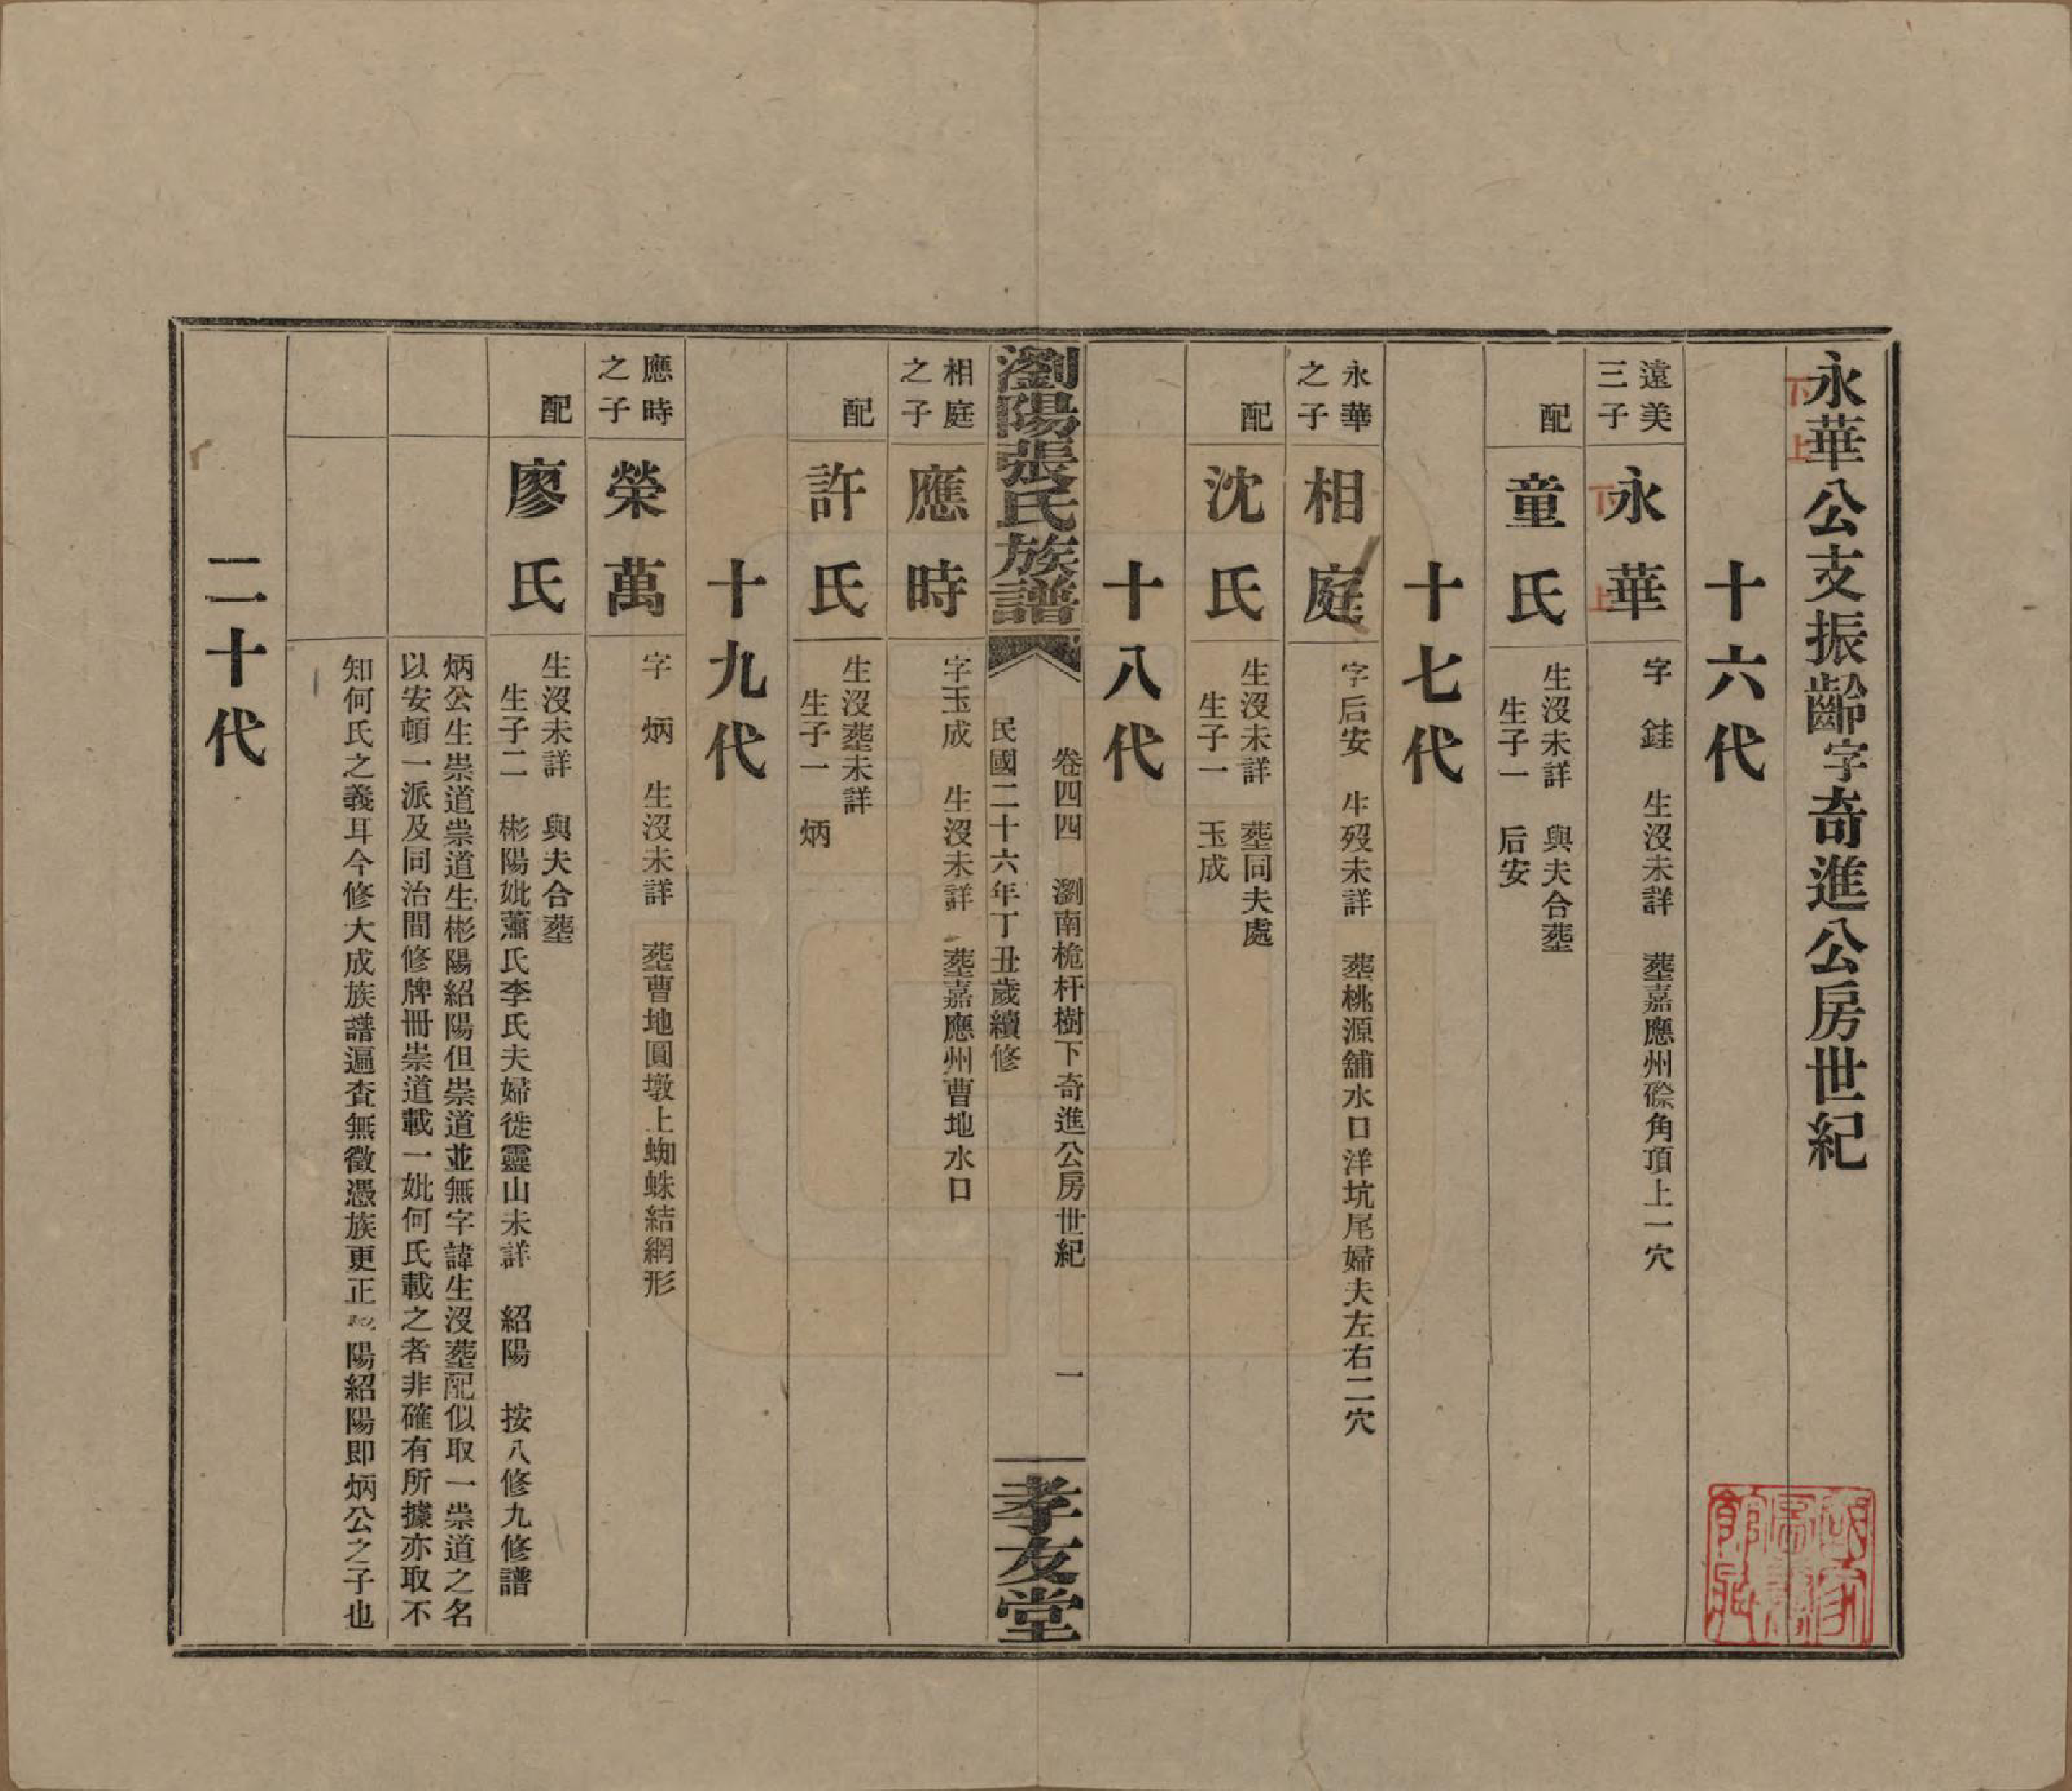 永華公支振齡字奇進公房世紀
下上
十六代
遠美
三子
永華
下上
字 銈 生沒未詳 塟嘉應州磜角頂上一穴
配
童氏
生沒未詳 與夫合塟
生子一 后安
十七代
永華
之子
相庭
字后安 生歿未詳 塟桃源舖水口洋坑尾婦夫左右二穴
配
沈氏
生沒未詳 塟同夫處
生子一 玉成
十八代
卷四四 瀏南桅杆樹下奇進公房世紀 一
瀏陽張氏族譜
民國二十六年丁丑歲續修
孝友堂
相庭
之子
應時
字玉成 生沒未詳 塟嘉應州曹地水口
配
許氏
生沒塟未詳
生子一 炳
十九代
應時
之子
榮萬
字 炳 生沒未詳 塟曹地圓墩上蜘蛛結網形
配
廖氏
生沒未詳 與夫合塟
生子二 彬陽妣蕭氏李氏夫婦徙靈山未詳 紹陽 按八修九修譜
炳公生崇道崇道生彬陽紹陽但崇道並無字諱生沒塟配似取一崇道之名
以安頓一派及同治間修牌冊崇道載一妣何氏載之者非確有所據亦取不
知何氏之義耳今修大成族譜遍查無徵憑族更正 陽紹陽即炳公之子也
二十代